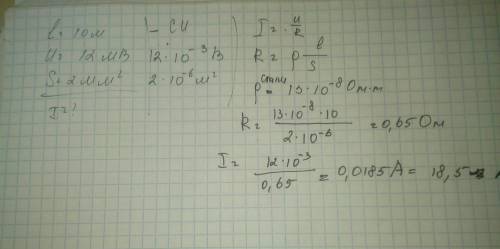 l = 10 м | – СИ
U = 12 мВ | 12·10⁻³ В
S = 2 мм² | 2·10⁻⁶ м²
I = ?
I = U/R
R = ρ l/S
ρ стали = 13·10⁻⁸ Ом·m
R = 13·10⁻⁸·10 / 2·10⁻⁶ = 0,65 Ом
I = 12·10⁻³ / 0,65 = 0,0185 A = 18,5